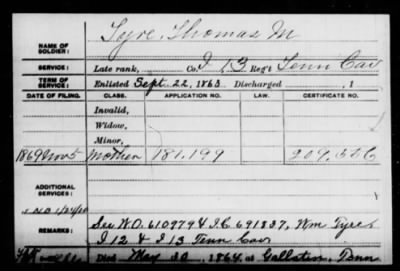 Tyre, Thomas M
NAME OF SOLDIER:
SERVICE: Late rank, Co. I 13 Reg't Tenn Cav
TERM OF SERVICE: Enlisted Sept. 22, 1863 Discharged , 1
DATE OF FILING. CLASS. APPLICATION NO. LAW. CERTIFICATE NO.
Invalid,
Widow,
Minor,
1869 Nov 5 Mother 181,199 209,
ADDITIONAL SERVICES:
REMARKS: See W.O. 610979 & I.C. 691837, Wm Tyre
I 12 & I 13 Tenn Cav
Died May 30, 1864, at Gallatin, Tenn